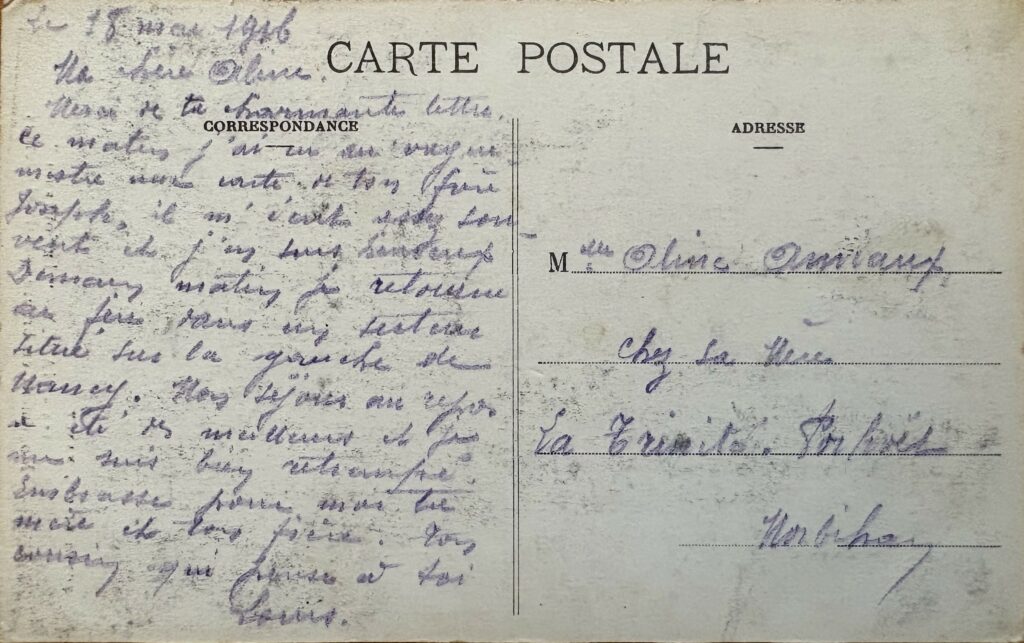 Le 18 mai 1916
CARTE POSTALE
Ma chère Aline.
Merci de ta charmante lettre.
CORRESPONDANCE
Ce matin j'ai eu au vague
mestre une carte de ton frère
Joseph, il m'écrit assez sou-
vent et j'en suis heureux
Demain matin je retourne
au feu dans un secteur
situé sur la gauche de
Nancy. Mon séjour au repos
a été des meilleurs et je
me suis bien retrempé.
Embrasse pour moi ta
mère et ton frère. Ton
cousin qui pense à toi
Louis.
ADRESSE
Melle Aline
chez sa Mère
La Trinité. Porhoët
Morbihan